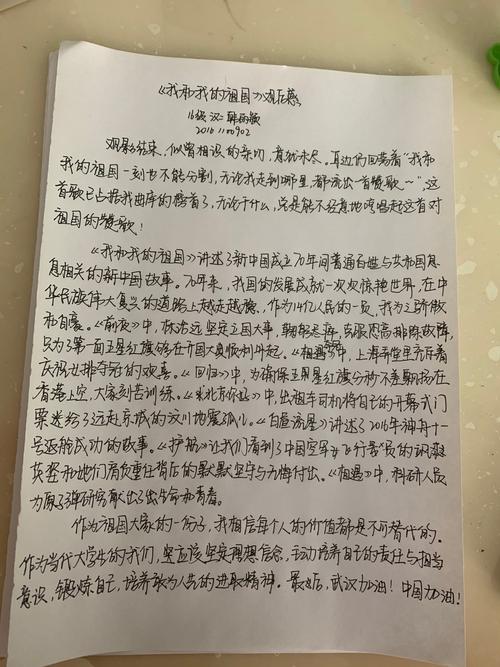 《我和我的祖国》观后感
16级 汉二 韩雨薇
观影结束，似曾相识的亲切，意犹未尽。耳边仍回荡着“我和
我的祖国一刻也不能分割，无论我走到哪里，都流出一首赞歌～”，这
首歌已占据我曲库的榜首了，无论干什么，总是能不经意地哼唱起这首对
祖国的赞歌！
《我和我的祖国》讲述了新中国成立70年间普通百姓与共和国息
息相关的新中国故事。70年来，我国的发展成就一次次惊艳世界，在中
华民族伟大复兴的道路上越走越稳，作为14亿人民的一员，我为之骄傲
和自豪。《前夜》中，林治远坚定立国大事，克服恐高排除故障，
只为了第一面五星红旗能够在开国大典顺利升起。《相遇》中，上海弄堂里充斥着
庆祝女排夺冠的欢喜。《回归》中，为确保五星红旗分秒不差飘扬在
香港上空，大家刻苦训练。《北京你好》中，出租车司机将自己的开幕式门
票送给了远赴京城的汶川地震孤儿。《白昼流星》讲述了2016年神舟十一
号返航成功的故事。《护航》让我们看到了中国空军女飞行员的飒爽
英姿和她们肩负重任背后的默默坚守与无悔付出。《相遇》中，科研人员
为原子弹研究献出了生命和青春。
作为祖国大家的一份子，我相信每个人的价值都是不可替代的。
作为当代大学生的我们，更应该坚定理想信念，主动培养自己的责任与担当
意识，锻炼自己，培养敢为人先的进取精神。最后，武汉加油！中国加油！